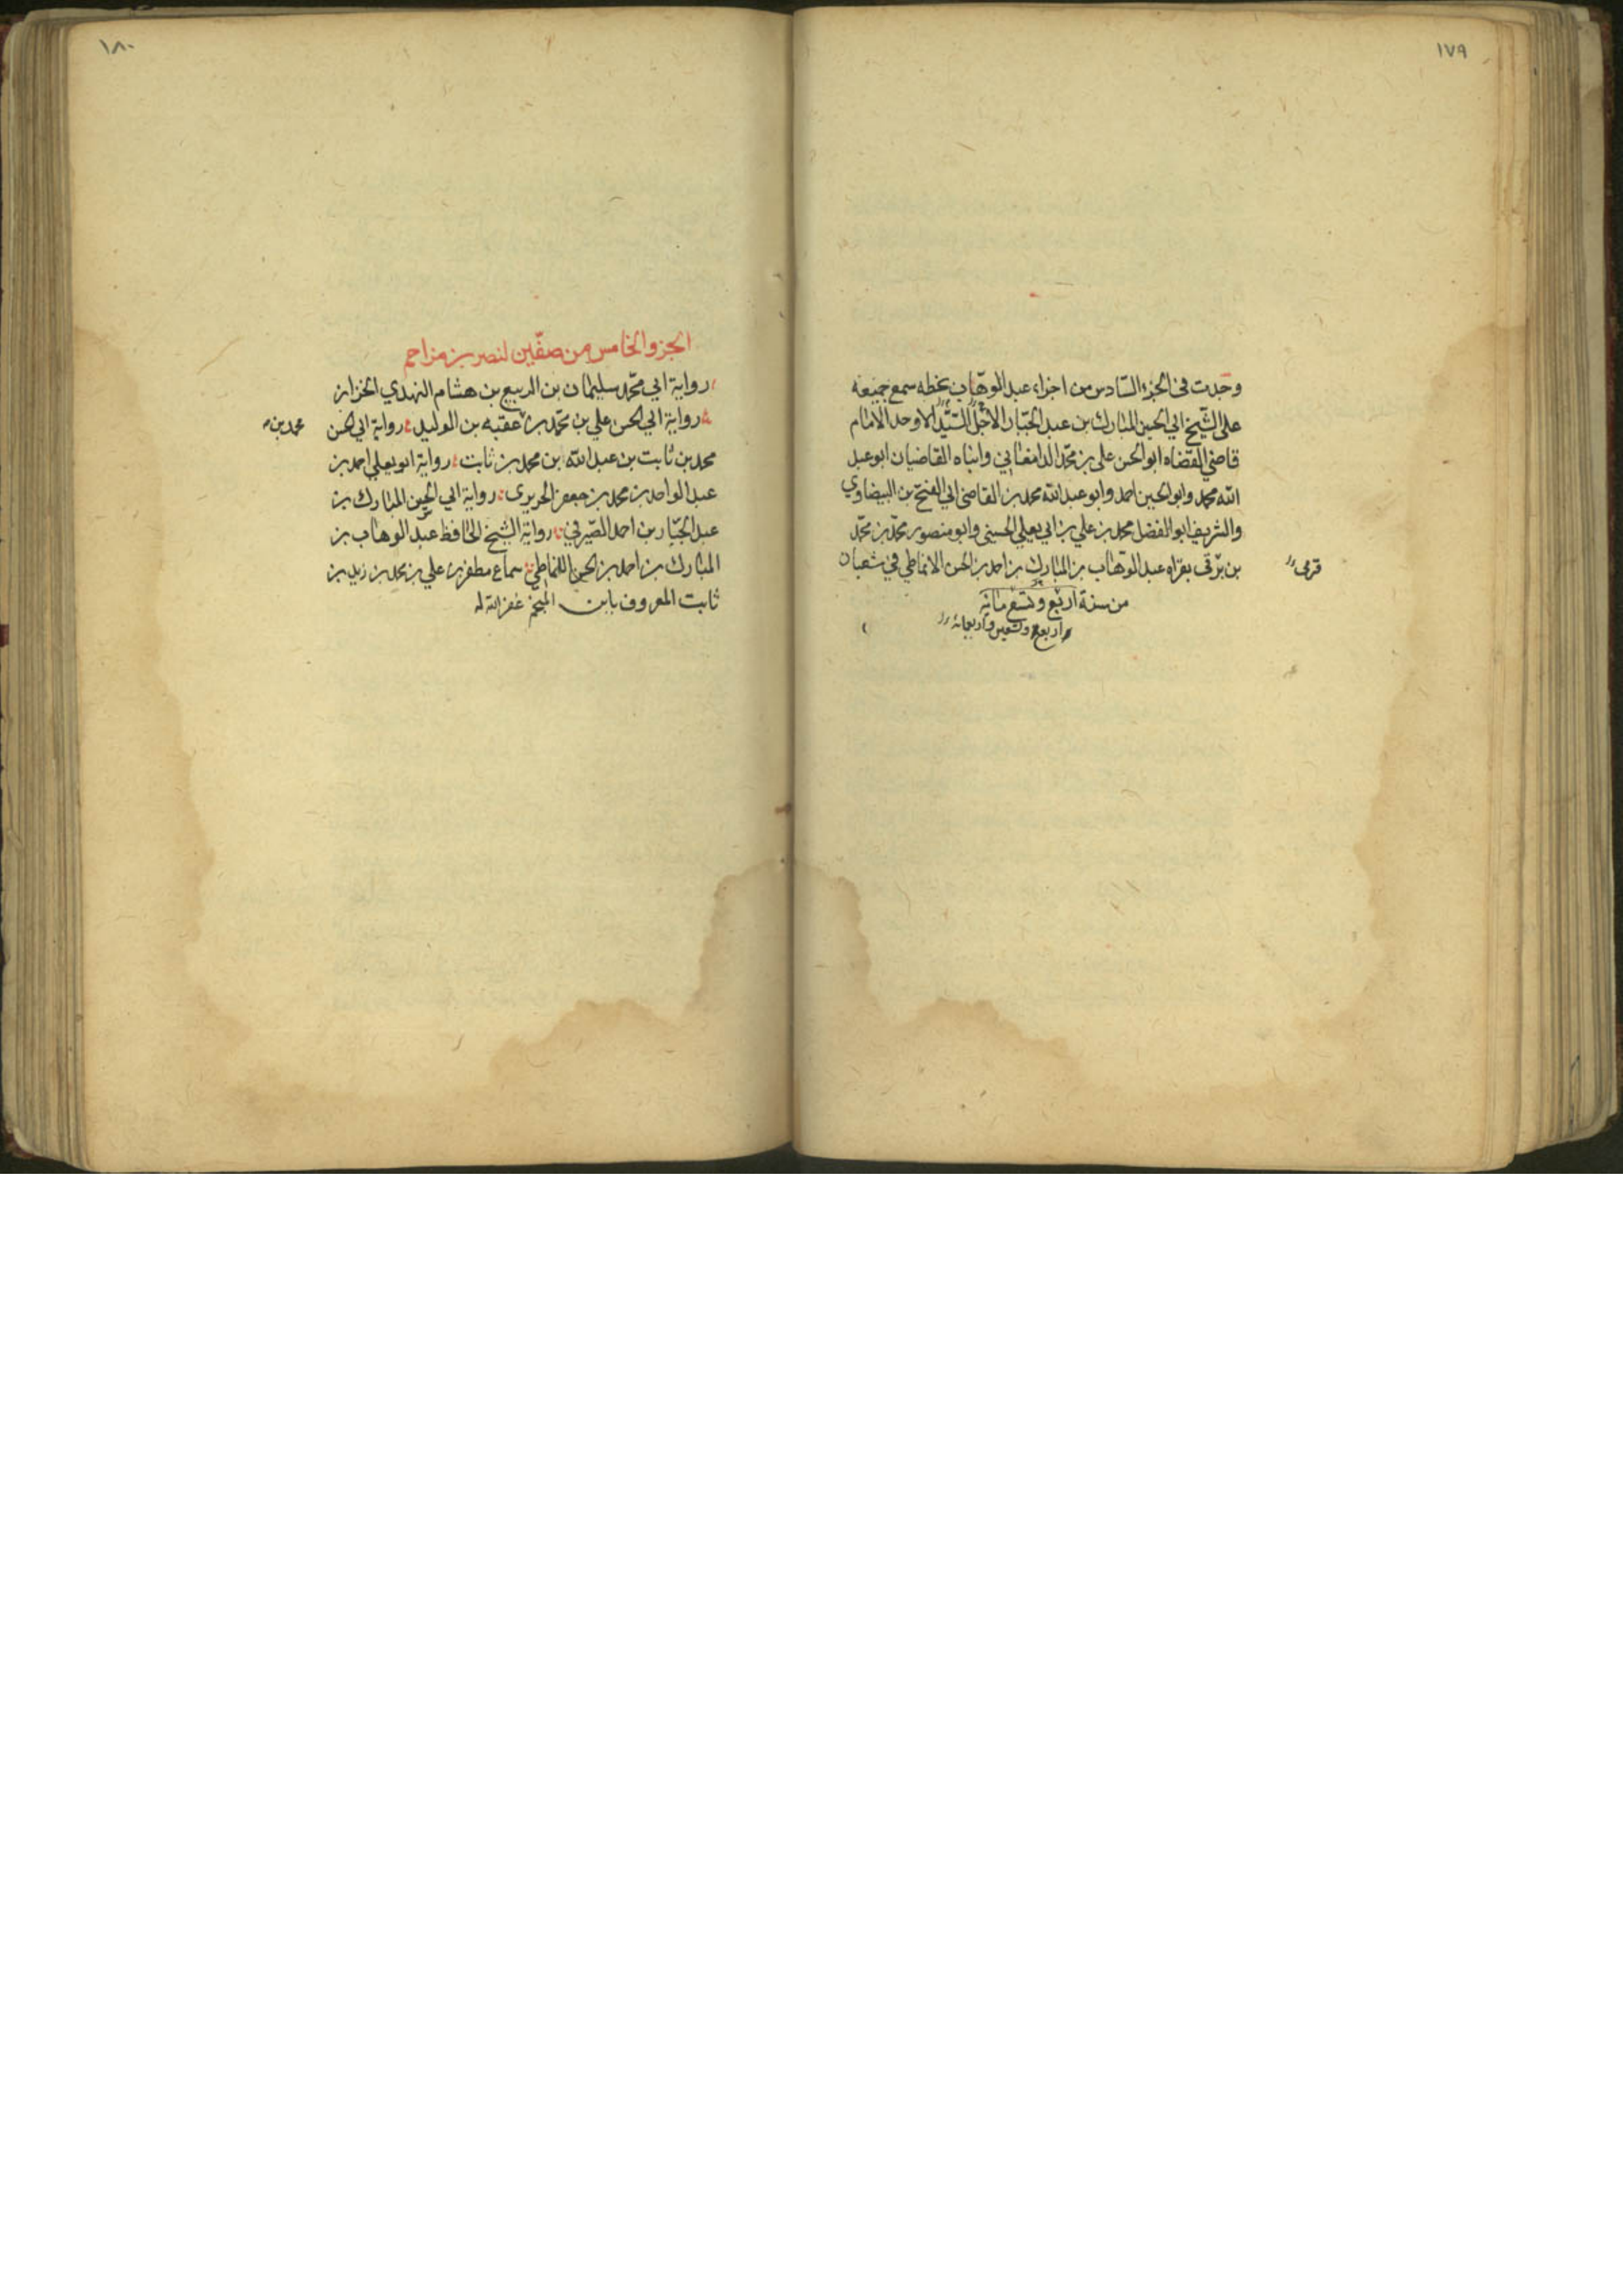 ١٧٩
وجدت فى الجزء السادس من اجزاء عبد الوهاب بخطه سمع جميعه
على الشيخ ابي الحسين المبارك بن عبد الجبار الاجل السيد الاوحد الامام
قاضي القضاه ابو الحسن على بن محمد الدامغاني وابناه القاضيان ابو عبد
الله محمد وابو الحسين احمد وابو عبد الله محمد بن القاضى ابي الفتح بن البيضاوي
والشريف ابو الفضل محمد بن علي بن ابي يعلي الحسينى وابو منصور محمد بن محمد
بن برقى بقراه عبد الوهاب بن المبارك بن احمد بن الحسن الانماطي في شعبان
قرمى
من سنة اربع وتسع مائه
اربع وتسعين واربعمائة
١٨٠
الجزو الخامس من صفين لنصر بن مزاحم
رواية ابي محمد سليمان بن الربيع بن هشام النهدي الخزاز
رواية ابي الحسن علي بن محمد بن عقبه بن الوليد رواية ابي الحسن
محمد بن
محمد بن ثابت بن عبد الله بن محمد بن ثابت رواية ابو يعلي احمد بن
عبد الواحد بن محمد بن جعفر الحريرى رواية ابي الحسين المبارك بن
عبد الجبار بن احمد الصيرفي رواية الشيخ الحافظ عبد الوهاب بن
المبارك بن احمد بن الحسن الانماطي سماع مظفر بن علي بن محمد بن زيد بن
ثابت المعروف بابن المنجم غفر الله له